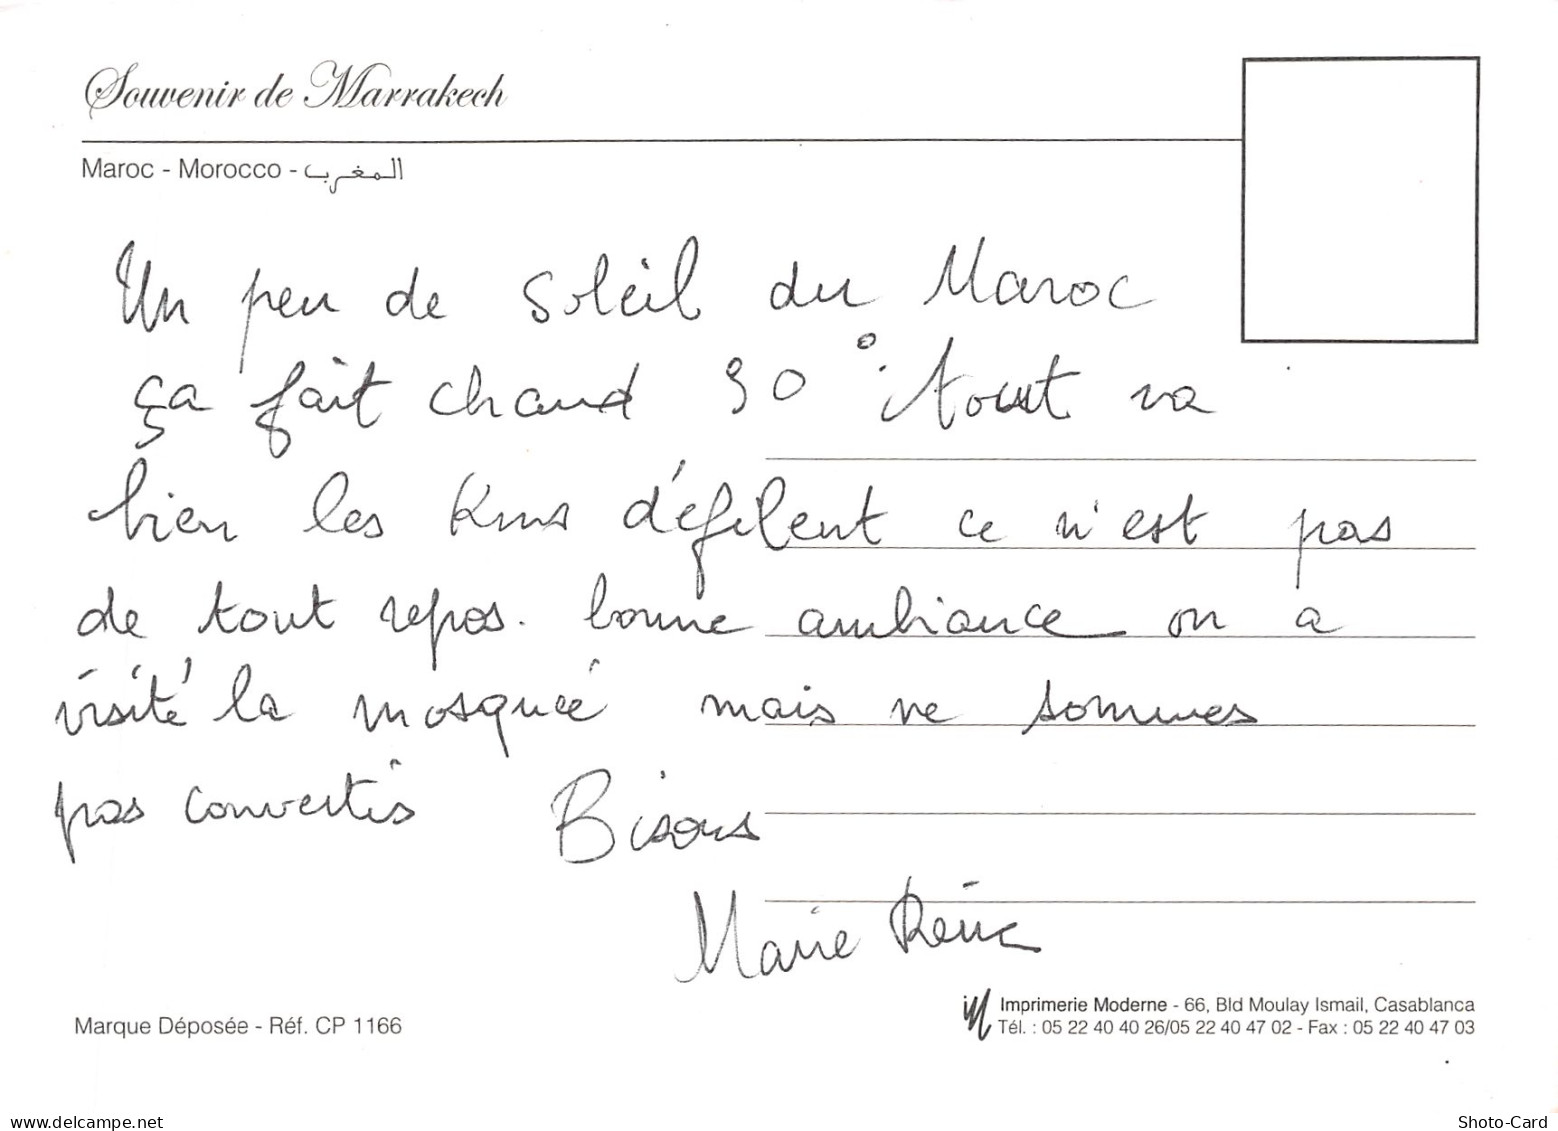 Souvenir de Marrakech
Maroc - Morocco - المغرب
Un peu de soleil du Maroc
ça fait chaud 30° tout va
bien les Kms défilent ce n'est pas
de tout repos. bonne ambiance on a
visité la mosqueé mais ne sommes
pas convertis Bisous
Marie
Marque Déposée - Réf. CP 1166
Imprimerie Moderne - 66, Bld Moulay Ismail, Casablanca
Tél. : 05 22 40 40 26/05 22 40 47 02 - Fax : 05 22 40 47 03
www.delcampe.net
Shoto-Card